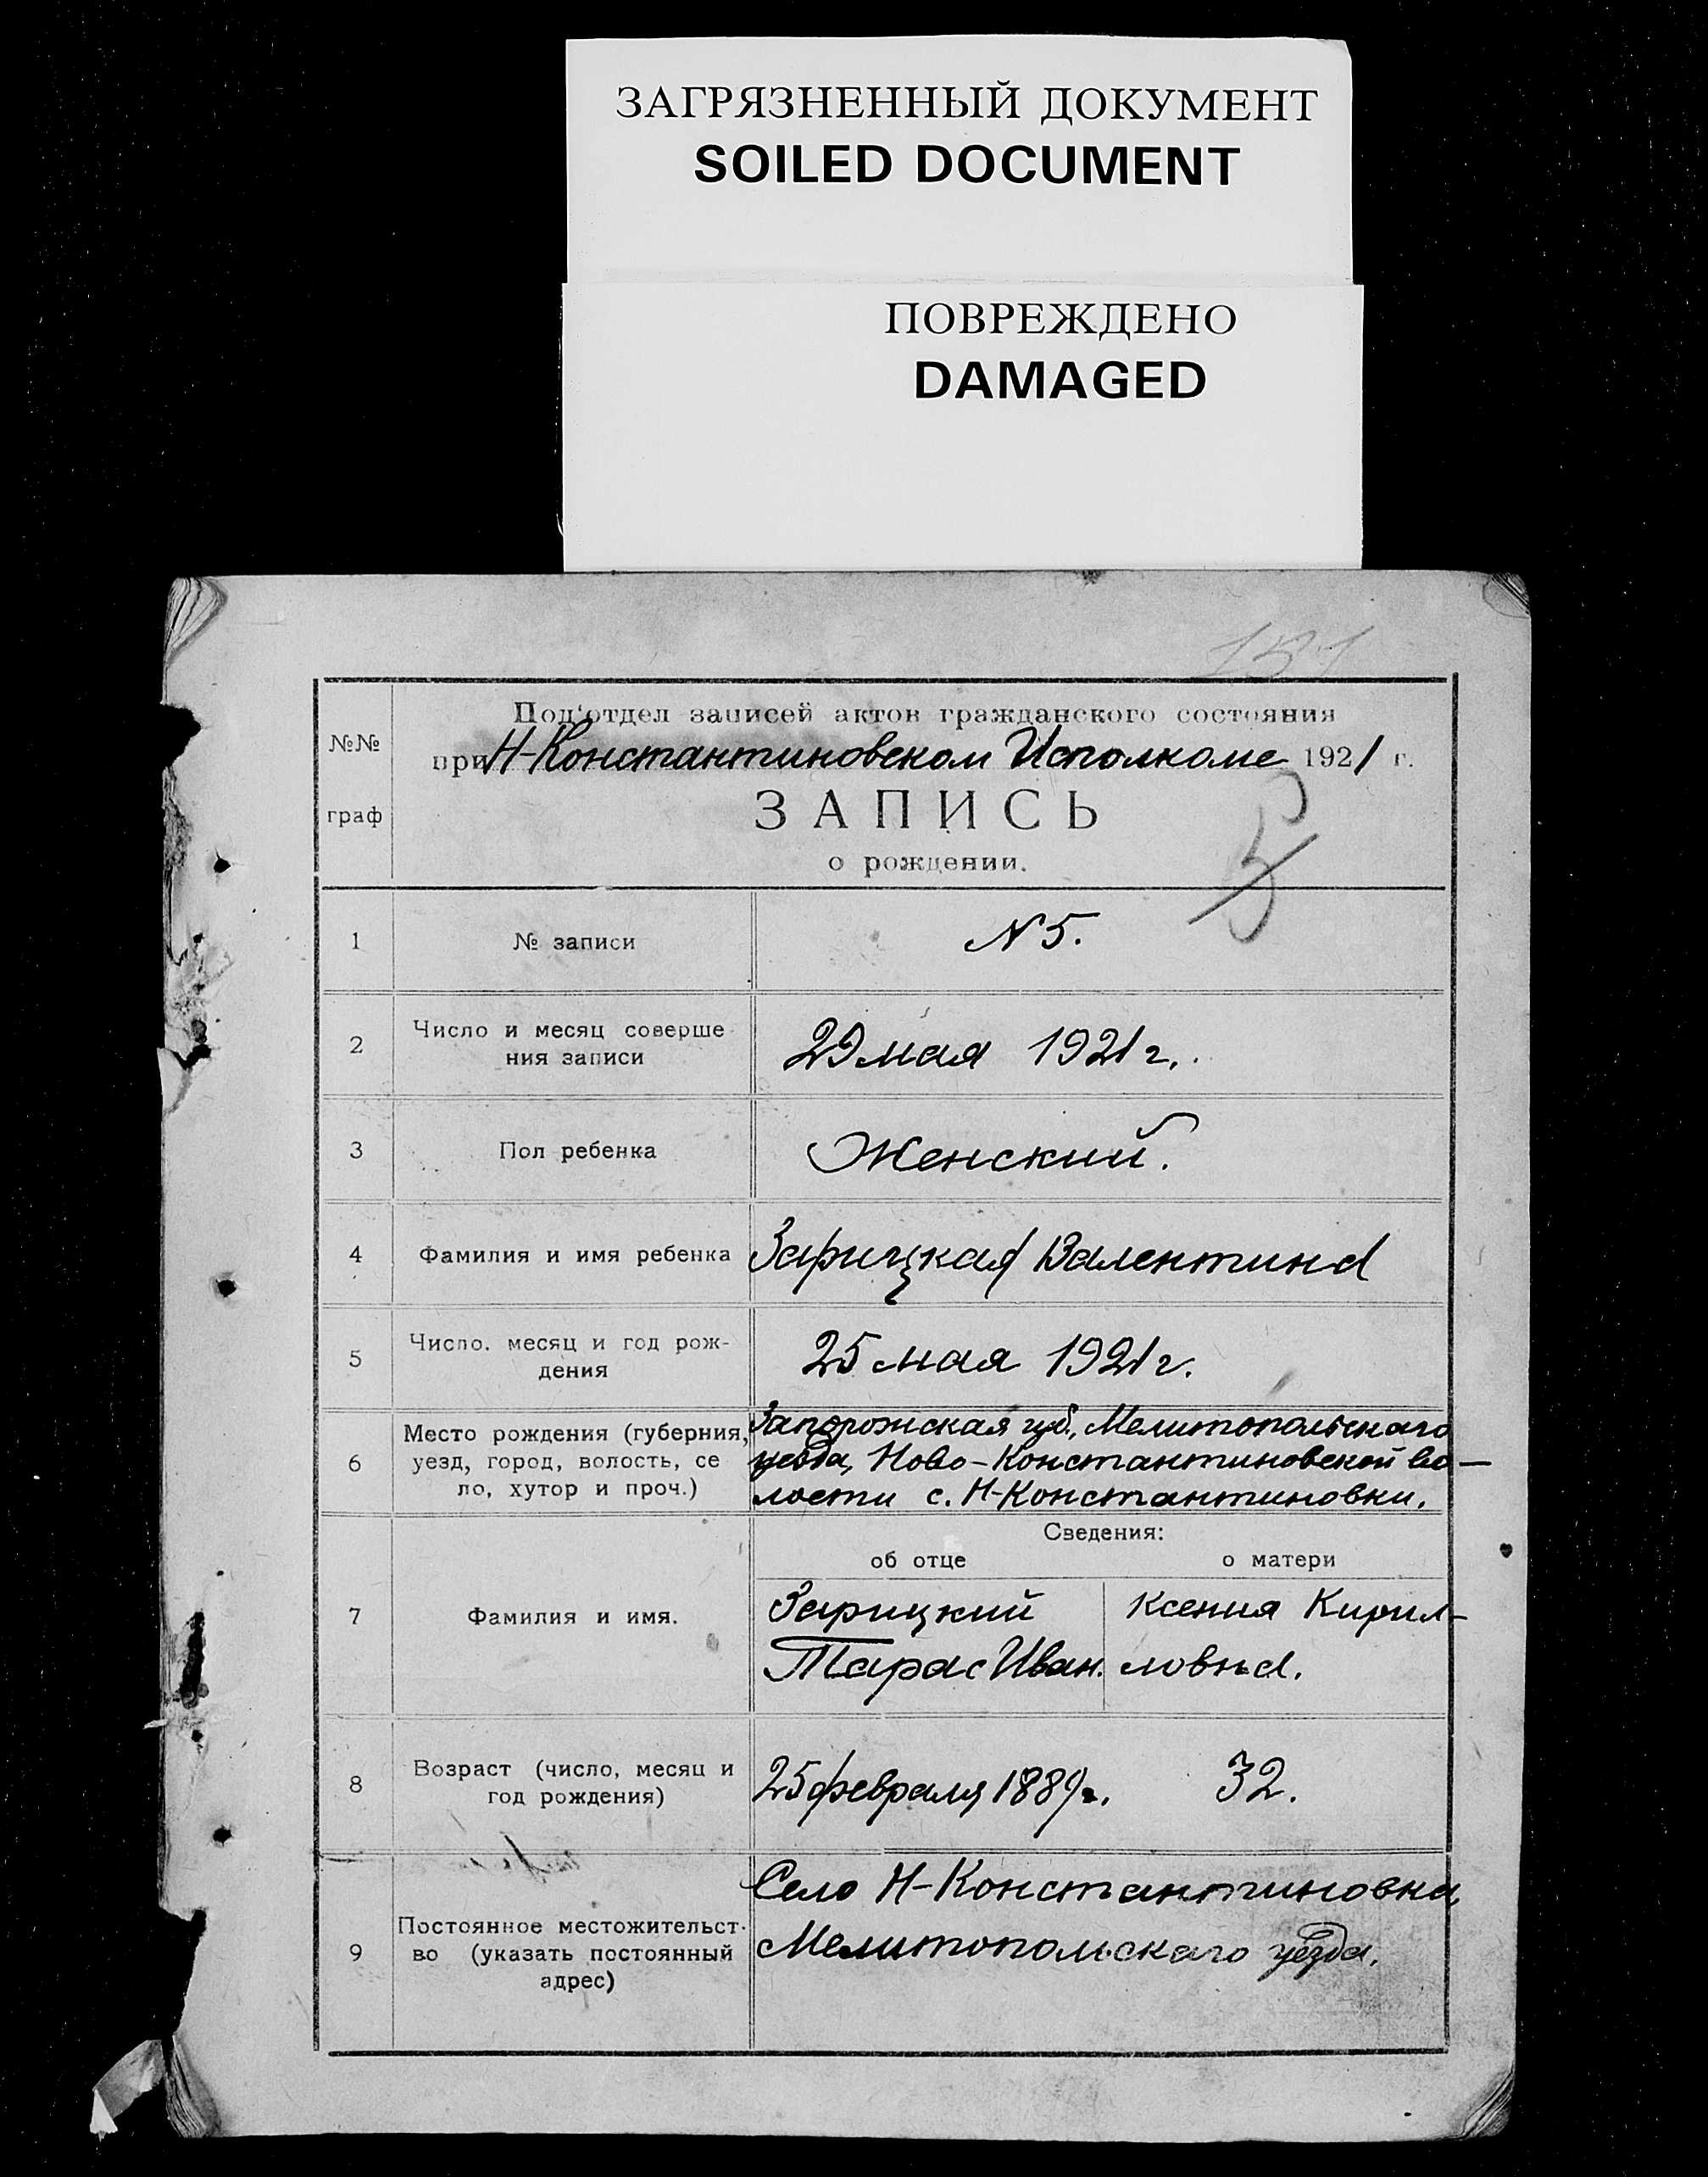 ЗАГРЯЗНЕННЫЙ ДОКУМЕНТ
SOILED DOCUMENT
ПОВРЕЖДЕНО
DAMAGED
131
№№
граф
Под'отдел записей актов гражданского состояния
при Н-Константиновском Исполкоме 1921 г.
ЗАПИСЬ
о рождении.
5
1
№ записи
N 5.
2
Число и месяц соверше
ния записи
29 мая 1921 г.
3
Пол ребенка
Женский.
4
Фамилия и имя ребенка
Зарицкая Валентина
5
Число. месяц и год рож-
дения
25 мая 1921 г.
6
Место рождения (губерния,
уезд, город, волость, се
ло, хутор и проч.)
Запорожская губ., Мелитопольскаго
уезда, Ново-Константиновской во-
лости с. Н-Константиновки.
Сведения:
об отце
о матери
7
Фамилия и имя.
Зарицкий
Тарас Иван.
Ксения Кирил-
ловна.
8
Возраст (число, месяц и
год рождения)
25 февраля 1889 г.
32.
9
Постоянное местожительст-
во (указать постоянный
адрес)
Село Н-Константиновка,
Мелитопольскаго уезда.